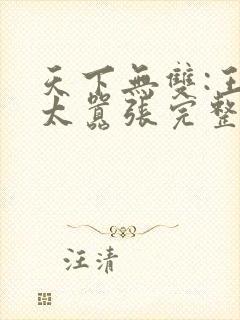 天下無雙:汪
太囂張完整
汪清